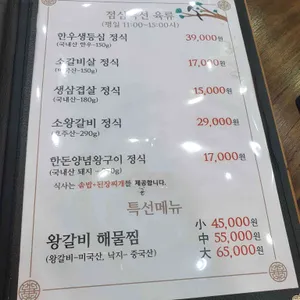 점심특선 육류
(평일 11:00~15:00시)
한우생등심 정식 39,000원
(국내산 한우-150g)
소갈비살 정식 17,000원
-150g)
생삼겹살 정식 15,000원
(국내산-180g)
소왕갈비 정식 29,000원
(호주산-290g)
한돈양념왕구이 정식 17,000원
(국내산 돼지
식사는 솥밥+된장찌개를 제공합니다.
특선메뉴
왕갈비 해물찜 小 45,000원
(왕갈비-미국산, 낙지- 중국산) 中 55,000원
大 65,000원